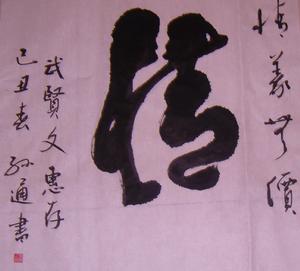 情义无價
情
武賢文惠存
己丑春 孙通書